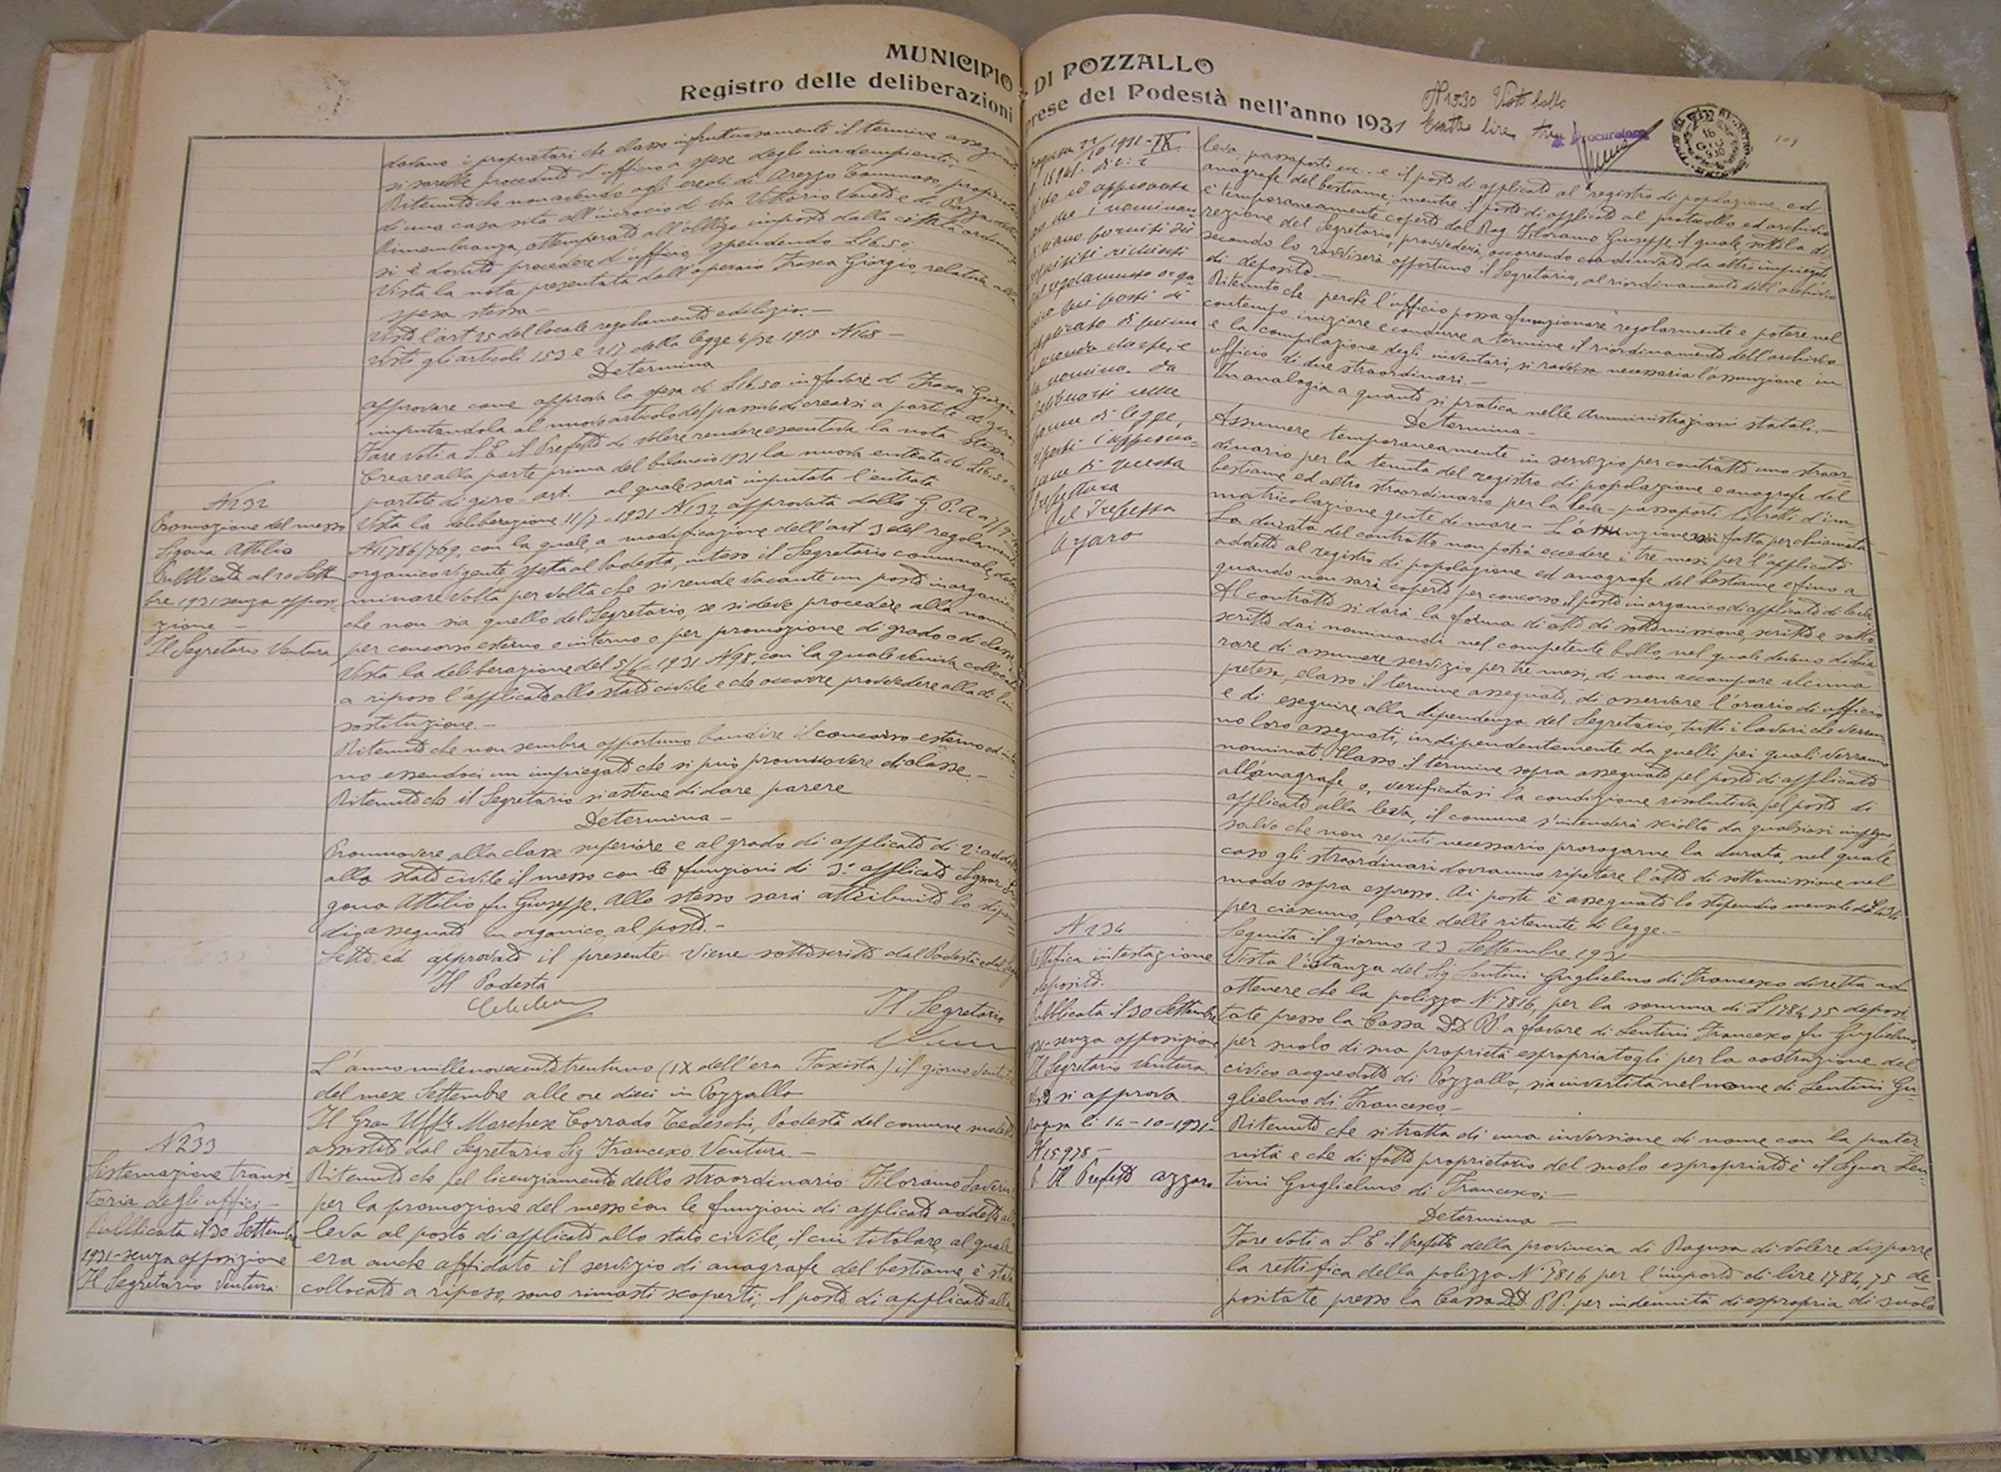 MUNICIPIO DI POZZALLO
Registro delle deliberazioni prese del Podestà nell'anno 1931
N 1530 Visto bollo
Esatte lire tre
Il Procuratore
dovano i proprietari che elasso infruttuosamente il termine assegnato
si sarebbe proceduto d'ufficio a spese degli inadempienti
Ritenuto che non avendo gli eredi di Arezzo Tommaso, proprietari
di una casa sita all'incrocio di Via Vittorio Veneto e di Piazza della
Rimembranza, ottemperato all'obbligo imposto dalla citata ordinanza
si è dovuto procedere d'ufficio, spendendo £16.50
Vista la nota presentata dall'operaio Frasca Giorgio, relativa alla
spesa stessa —
Visto l'art 25 del locale regolamento edilizio. —
Visti gli articoli 153 e 217 della legge 4/2 1915 N 148 —
Determina
approvare come approva la spesa di £16.50 in favore di Frasca Giorgio
imputandola al nuovo articolo del passivo di crearsi a partite di giro.
Fare voti a S.E. il Prefetto di volere rendere esecutiva la nota stessa
Creare alla parte prima del bilancio 1931 la nuova entrata di £16.50 a
partite di giro art. al quale sarà imputata l'entrata
N 232
Promozione del messo
Sigona Attilio
Pubblicata al 20 Settem
bre 1931 senza opposi
zione —
Il Segretario Ventura
Vista la deliberazione 11/7-1931 N 132 approvata dalla G. P. A.
N 11786/769, con la quale, a modificazione dell'art 3 del regolamento
organico vigente, spetta al Podestà, inteso il Segretario comunale, deter
minare volta per volta che si rende vacante un posto in organico
che non sia quello del Segretario, se si deve procedere alla nomina
per concorso esterno o interno o per promozione di grado o di classe
Vista la deliberazione del 5/6-1931 N 98, con la quale veniva collocato
a riposo l'applicato allo stato civile e che occorre provvedere alla di lui
sostituzione. —
Ritenuto che non sembra opportuno bandire il concorso esterno od inter
no essendoci un impiegato che si può promuovere di classe —
Ritenuto che il Segretario si astiene di dare parere
Determina —
Promuovere alla classe superiore e al grado di applicato di 2ª addetto
allo stato civile il messo con le funzioni di 3° applicato Signor Si
gona Attilio fu Giuseppe. Allo stesso sarà attribuito lo stipen
dio assegnato in organico al posto. —
Letto ed approvato il presente viene sottoscritto dal Podestà e dal Seg
Il Podestà
Il Segretario
L'anno millenovecentotrentuno (IX dell'era Fascista) il giorno ventitre
del mese Settembre alle ore dieci in Pozzallo
Il Gran Uff. Marchese Corrado Tedeschi, Podestà del comune suddetto
assistito dal Segretario Sig Francesco Ventura. —
N 233
Sistemazione transi
toria degli uffici —
Pubblicata il 30 Settembre
1931 - senza opposizione
Il Segretario Ventura
Ritenuto che pel licenziamento dello straordinario Filoramo Saverio
per la promozione del messo con le funzioni di applicato addetto alla
leva al posto di applicato allo stato civile, il cui titolare, al quale
era anche affidato il servizio di anagrafe del bestiame, è stato
collocato a riposo, sono rimasti scoperti; il posto di applicato alla
Ragusa 22/10 1931-IX
N 15901. Div: 2
approvata
che i nominan
siano forniti dei
requisiti richiesti
dal regolamento orga
nico pei posti di
applicato di prima
e seconda classe, e
la nomina da
deliberarsi nelle
forme di legge,
riporti l'approva
zione di questa
Prefettura
Pel Prefetto
Azzaro
leva, passaporti ecc. e il posto di applicato al registro di popolazione ed
anagrafe del bestiame; mentre il posto di applicato al protocollo ed archivio
è temporaneamente coperto dal Rag. Filoramo Giuseppe, il quale, sotto la di
rezione del Segretario, provvederà, occorrendo coadiuvato da altro impiegato
secondo lo ravviserà opportuno il Segretario, al riordinamento dell'archivio
di deposito —
Ritenuto che perché l'ufficio possa funzionare regolarmente e potere nel
contempo iniziare e condurre a termine il riordinamento dell'archivio
e la compilazione degli inventari, si ravvisa necessaria l'assunzione in
ufficio di due straordinari. —
In analogia a quanto si pratica nelle Amministrazioni statali. —
Determina —
Assumere temporaneamente in servizio per contratto uno straor
dinario per la tenuta del registro di popolazione e anagrafe del
bestiame ed altro straordinario per la leva - passaporti - libretti d'im
matricolazione gente di mare — L'assunzione sarà fatta per chiamata
La durata del contratto non potrà eccedere i tre mesi per l'applicato
addetto al registro di popolazione ed anagrafe del bestiame e fino a
quando non sarà coperto per concorso il posto in organico di applicato di leva
Al contratto si darà la forma di atto di sottomissione, scritto e sotto
scritto dai nominandi nel competente bollo, nel quale devono dichia
rare di assumere servizio per tre mesi, di non accampare alcuna
pretesa, elasso il termine assegnato, di osservare l'orario di ufficio
e di eseguire alla dipendenza del Segretario, tutti i lavori che verran
no loro assegnati, indipendentemente da quelli pei quali verranno
nominati. Elasso il termine sopra assegnato pel posto di applicato
all'anagrafe, o, verificatasi la condizione risolutiva pel posto di
applicato alla leva, il comune s'intenderà sciolto da qualsiasi impegno,
salvo che non reputi necessario prorogarne la durata, nel quale
caso gli straordinari dovranno ripetere l'atto di sottomissione nel
modo sopra espresso. Ai posti è assegnato lo stipendio mensile di
per ciascuno, lorde delle ritenute di legge. —
Seguita il giorno 23 Settembre 1931
N 234
Rettifica intestazione
deposito.
Pubblicata il 30 Settembre
senza opposizione
Il Segretario Ventura
si approva
Ragusa li 14-10-1931-
N 15978 —
p. Il Prefetto Azzaro
Vista l'istanza del Sig Lentini Guglielmo di Francesco diretta ad
ottenere che la polizza N° 7816, per la somma di £ 1784,75 deposi
tate presso la Cassa DD. PP. a favore di Lentini Francesco fu Guglielmo,
per suolo di sua proprietà espropriatogli per la costruzione del
civico acquedotto di Pozzallo, sia invertita nel nome di Lentini Gu
glielmo di Francesco —
Ritenuto che si tratta di una inversione di nome con la pater
nità e che di fatto proprietario del suolo espropriato è il Signor Len
tini Guglielmo di Francesco; —
Determina —
Fare voti a S. E il prefetto della provincia di Ragusa di volere disporre
la rettifica della polizza N° 7816 per l'importo di lire 1784,75 de
positate presso la Cassa DD. PP. per indennità di espropria di suolo